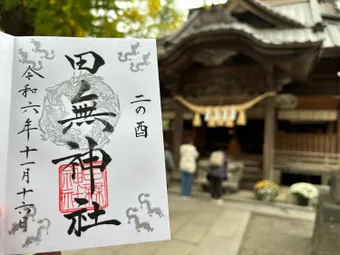 二の酉
田無神社
令和六年十一月十六日